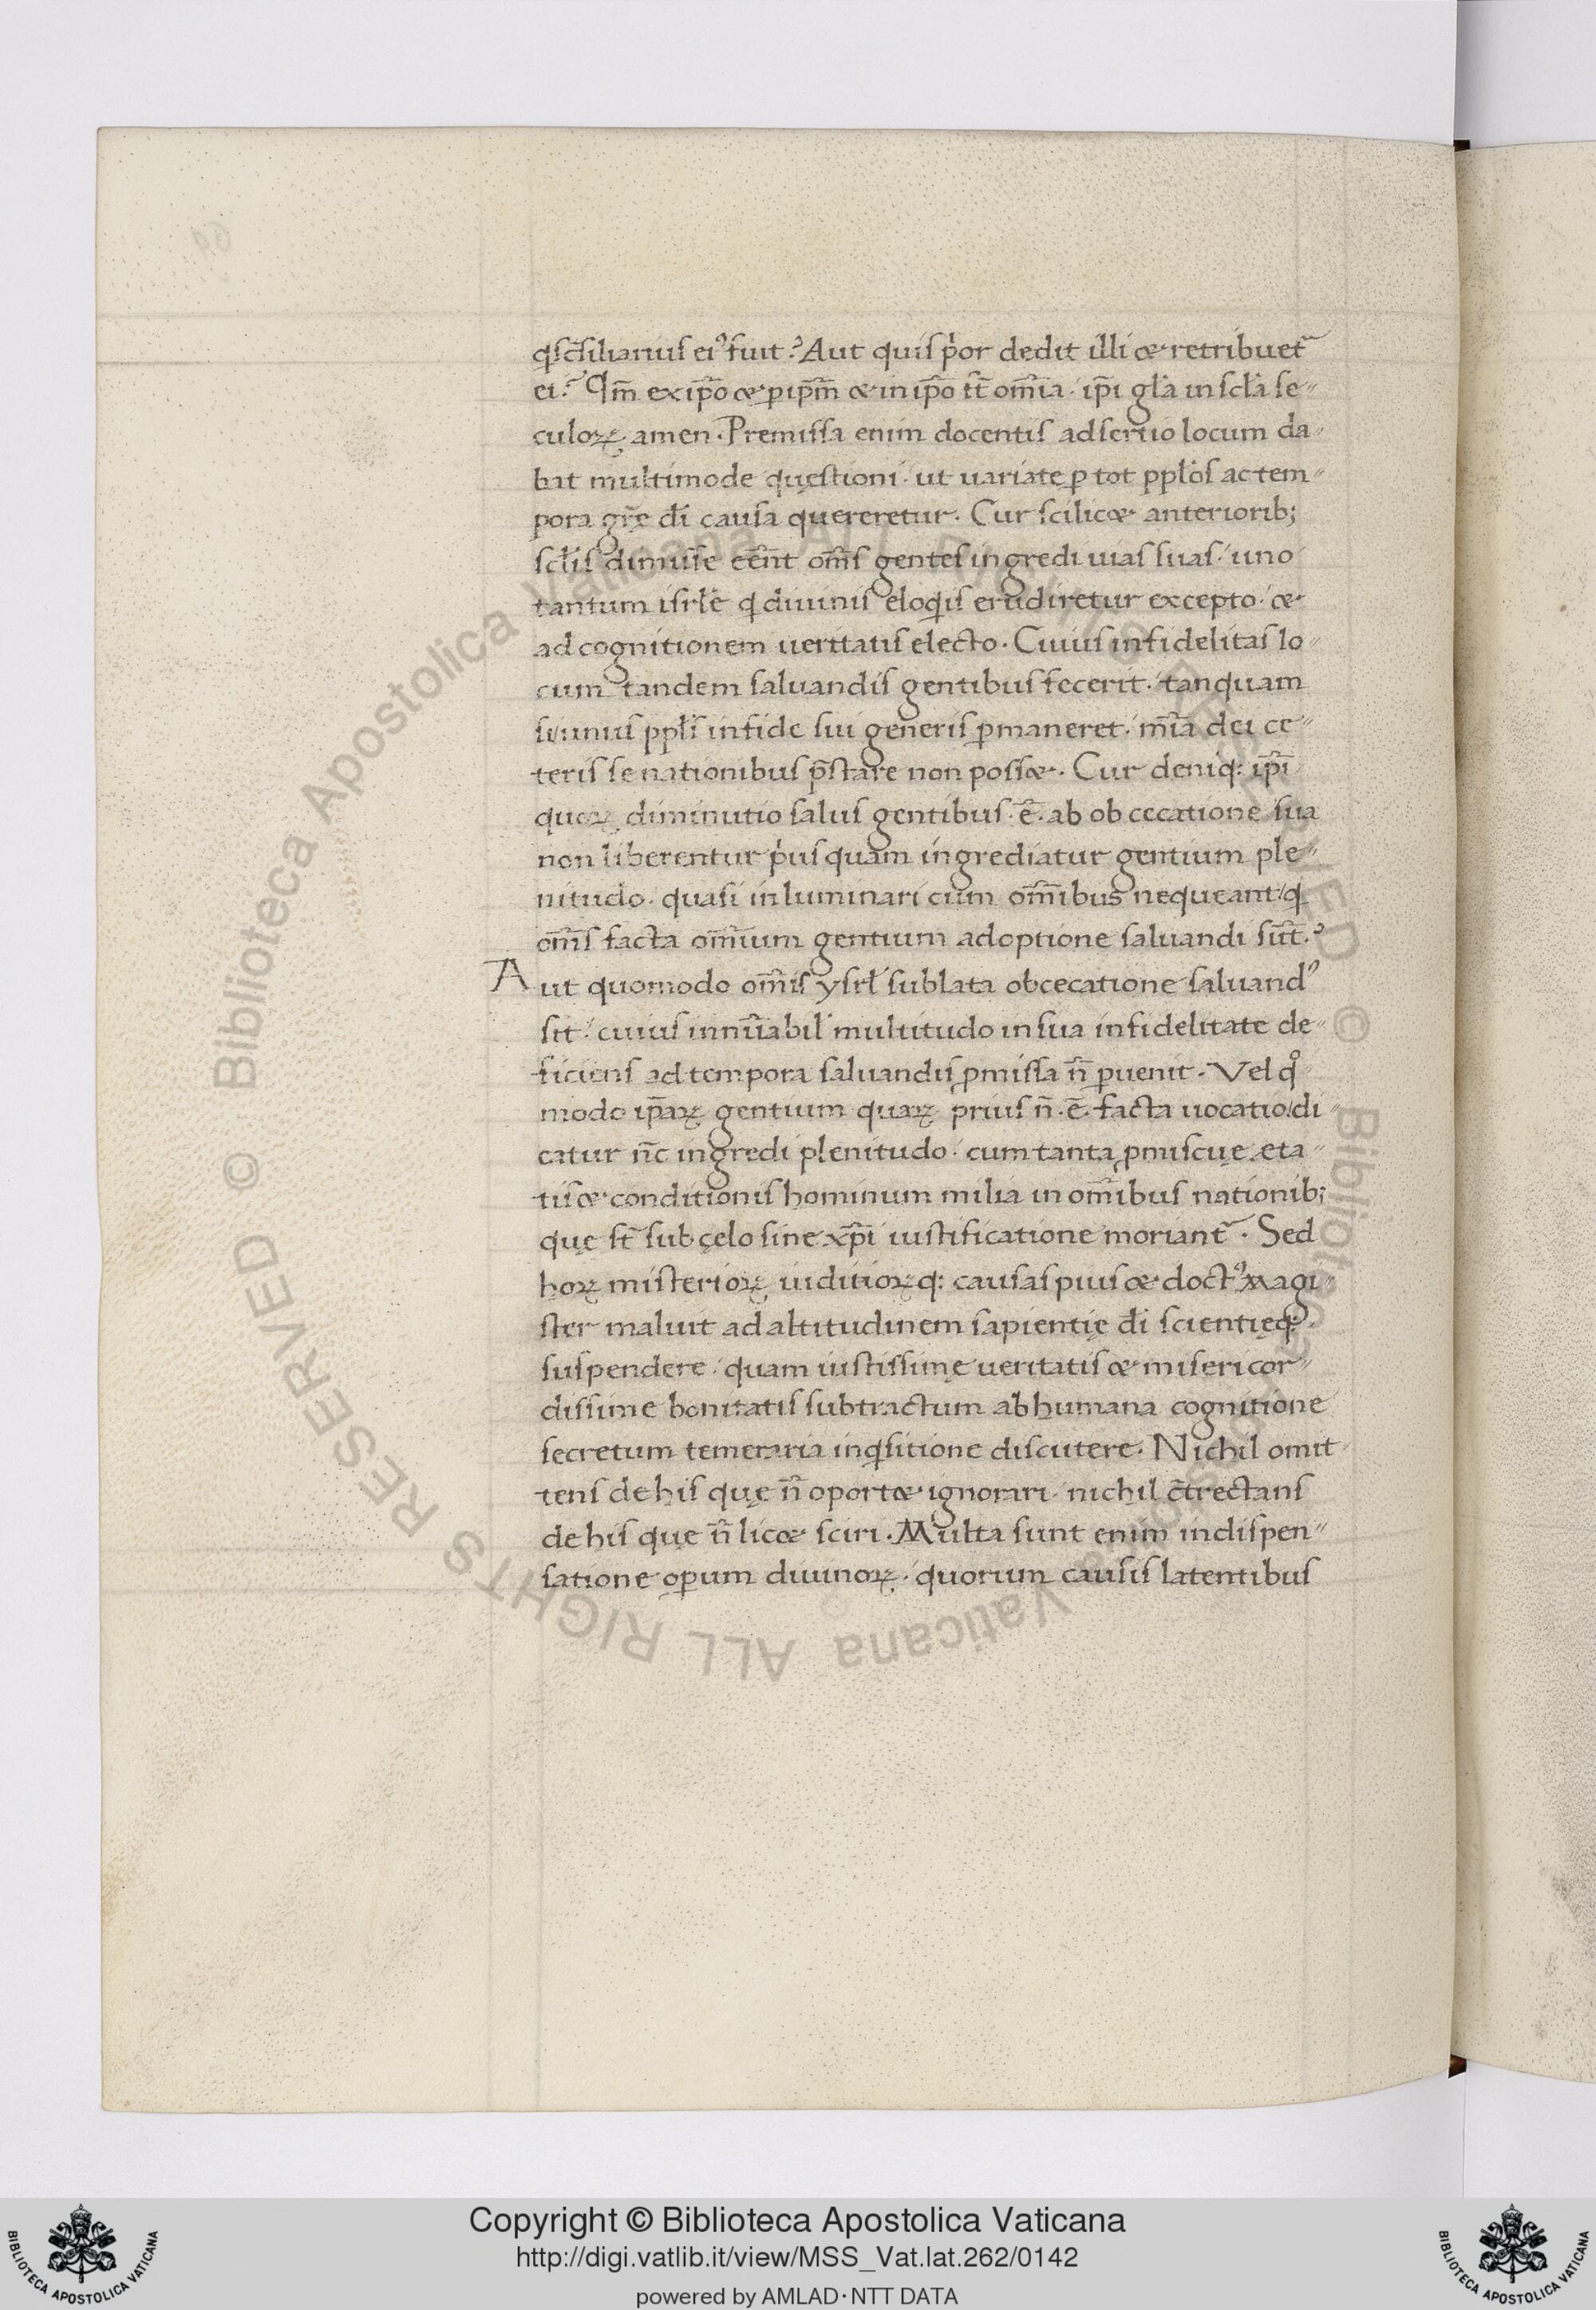 qs c̄siliarius eiꝰ fuit? Aut quis p̍or dedit illi & retribuet̃
ei? Qm̄ ex ip̄o & ꝑ ip̄m & in ip̄o st̄ om̄ia. ip̄i gl̄a in scl̄a se
culoꝝ amen. Premissa enim docentis adsertio locum da
bat multimode questioni. ut uariate ꝑ tot ppl̄os ac tem
pora gr̄ę dī causa quereretur. Cur scilic& anteriorib;
scl̄is dimisse eēnt om̄s gentes ingredi uias suas. uno
tantum isrl̄e q̍ diuinis eloq̍is erudiretur excepto. &
ad cognitionem ueritatis electo. Cuius infidelitas lo
cum tandem saluandis gentibus fecerit. tanquam
si unius ppl̄i in fide sui generis ꝑmaneret. mīa dei ce
teris se nationibus p̄stare non poss&. Cur deniq: ip̄i
quoꝝ diminutio salus gentibus .ē. ab obcecatione sua
non liberentur p̍us quam ingrediatur gentium ple
nitudo. quasi inluminari cum om̄ibus nequeant q̍
om̄s facta om̄ium gentium adoptione saluandi sūt?
Aut quomodo om̄is ysrl̄ sublata obcecatione saluandꝰ
sit. cuius innūabil̄ multitudo in sua infidelitate de
ficiens ad tempora saluandis ꝓmissa n̄ ꝑuenit. Vel qͦ
modo ip̄aꝝ gentium quaꝝ prius n̄ .ē. facta uocatio di
catur n̄c ingredi plenitudo. cum tanta ꝓmiscuę eta
tis & conditionis hominum milia in om̄ibus nationib;
quę st̄ sub çelo sine xp̄i iustificatione moriant̃. Sed
hoꝝ misterioꝝ iuditioꝝq: causas pius & doctꝰ magi
ster maluit ad altitudinem sapientię dī scientięq:
suspendere. quam iustissimę ueritatis & misericor
dissime bonitatis subtractum ab humana cognitione
secretum temeraria inq̍sitione discutere. Nichil omit
tens de his quę n̄ oport& ignorari. nichil c̄trectans
de his quę n̄ lic& sciri. Multa sunt enim in dispen
satione oꝑum diuinoꝝ. quorum causis latentibus
Copyright © Biblioteca Apostolica Vaticana
http://digi.vatlib.it/view/MSS_Vat.lat.262/0142
powered by AMLAD·NTT DATA
BIBLIOTECA APOSTOLICA VATICANA
BIBLIOTECA APOSTOLICA VATICANA
© Biblioteca Apostolica Vaticana ALL RIGHTS RESERVED © Biblioteca Apostolica Vaticana ALL RIGHTS RESERVED